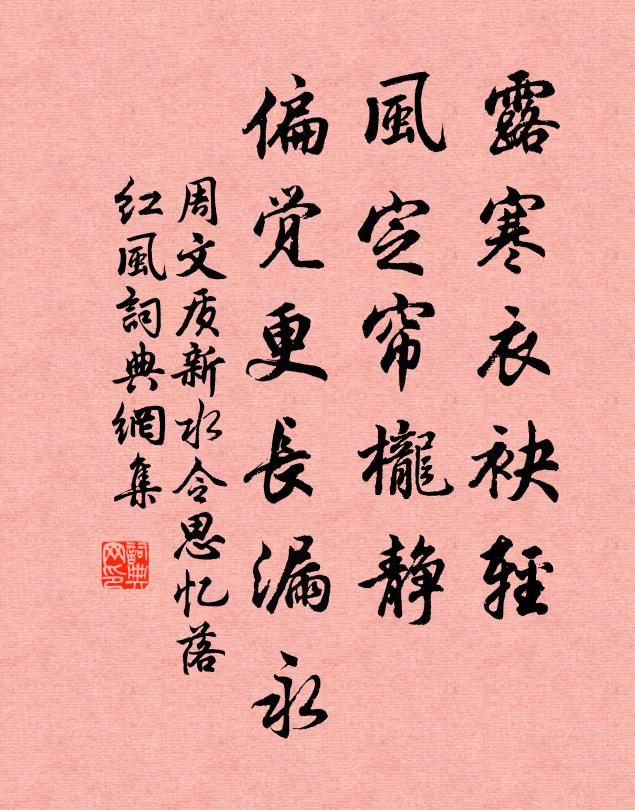 露寒衣袂輕
風定帘櫳靜
偏觉更長漏永
周文质新水令思忆落
红風詞典網集
詞典
网印